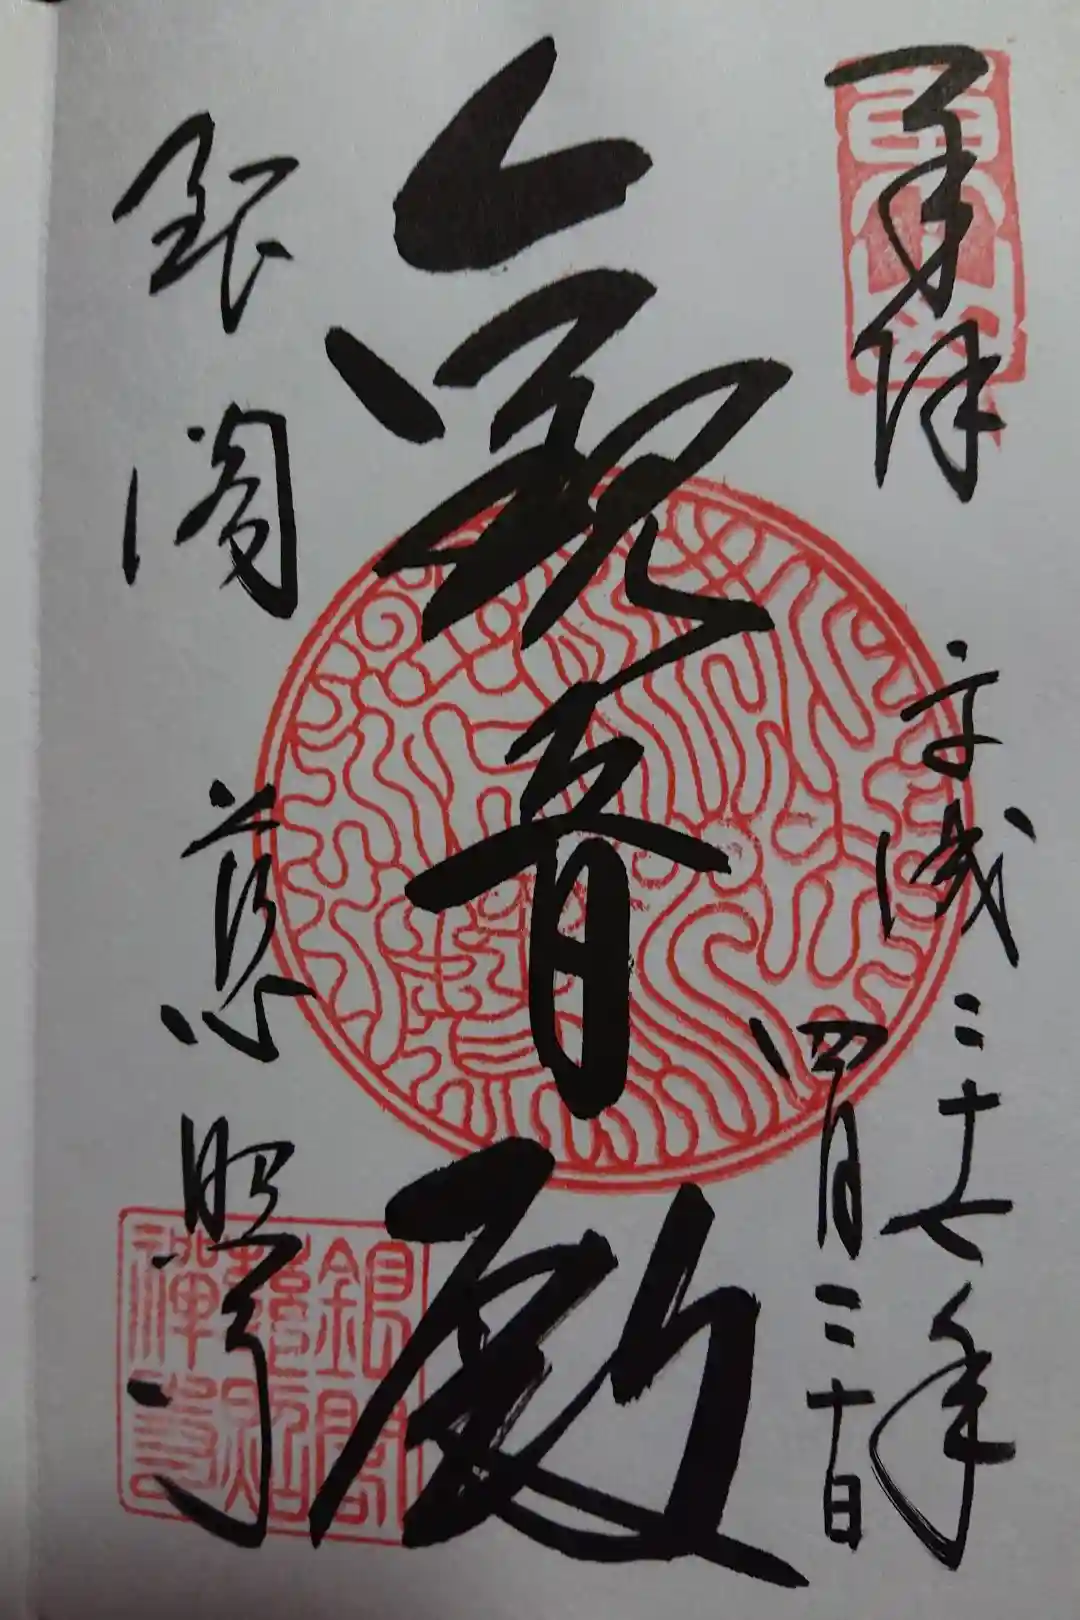 奉拝
平成二十七年
四月二十日
観音殿
銀閣慈照寺
銀閣
慈照
禅寺